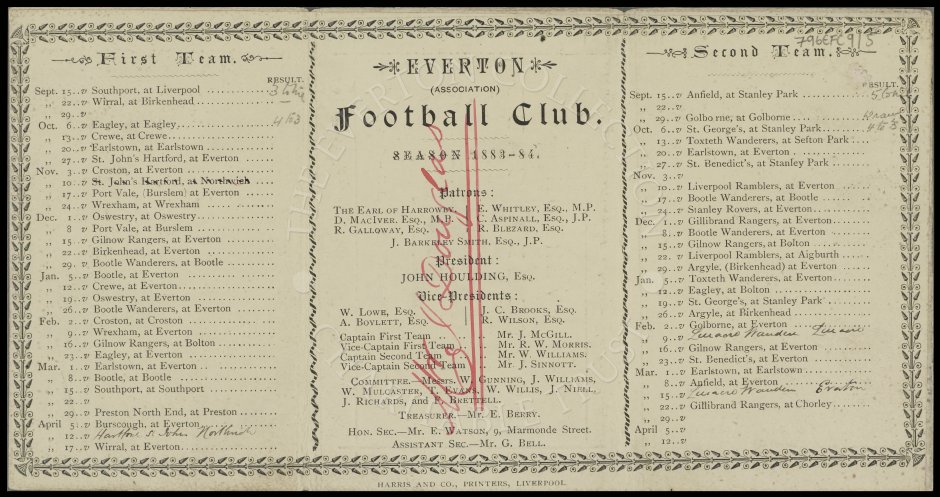 First Team.
RESULT.
Sept. 15..v Southport, at Liverpool
„ 22..v Wirral, at Birkenhead
„ 29..v
Oct. 6..v Eagley, at Eagley
4 to 3
„ 13..v Crewe, at Crewe
„ 20..v Earlstown, at Earlstown
„ 27..v St. John's Hartford, at Everton
Nov. 3..v Croston, at Everton
„ 10..v St. John's Hartford, at Northwich
„ 17..v Port Vale, (Burslem) at Everton
„ 24..v Wrexham, at Wrexham
Dec. 1..v Oswestry, at Oswestry
„ 8..v Port Vale, at Burslem
„ 15..v Gilnow Rangers, at Everton
„ 22..v Birkenhead, at Everton
„ 29..v Bootle Wanderers, at Bootle
Jan. 5..v Bootle, at Everton
„ 12..v Crewe, at Everton
„ 19..v Oswestry, at Everton
„ 26..v Bootle Wanderers, at Everton
Feb. 2..v Croston, at Croston
„ 9..v Wrexham, at Everton
„ 16..v Gilnow Rangers, at Bolton
„ 23..v Eagley, at Everton
Mar. 1..v Earlstown, at Everton
„ 8..v Bootle, at Bootle
„ 15..v Southport, at Southport
„ 22..v
„ 29..v Preston North End, at Preston
April 5..v Burscough, at Everton
„ 12..v Hartford St John
„ 17..v Wirral, at Everton
EVERTON
(ASSOCIATION)
Football Club.
SEASON 1883-84.
Patrons:
THE EARL OF HARROWBY. E. WHITLEY, ESQ., M.P.
D. MACIVER, ESQ., M.P. C. ASPINALL, ESQ., J.P.
R. GALLOWAY, ESQ. R. BLEZARD, ESQ.
J. BARKELEY SMITH, ESQ., J.P.
President:
JOHN HOULDING, ESQ.
Vice-Presidents:
W. LOWE, ESQ. J. C. BROOKS, ESQ.
A. BOYLETT, ESQ. R. WILSON, ESQ.
Captain First Team .. .. Mr. J. McGILL.
Vice-Captain First Team .. Mr. R. W. MORRIS.
Captain Second Team .. Mr. W. WILLIAMS.
Vice-Captain Second Team .. Mr. J. SINNOTT.
COMMITTEE.—Messrs. W. GUNNING, J. WILLIAMS,
W. MULCASTER, T. EVANS, W. WILLIS, J. NIELL,
J. RICHARDS, and A. BRETTELL.
TREASURER.—MR. E. BERRY.
HON. SEC.—MR. E. WATSON, 9, Marmonde Street.
ASSISTANT SEC.—MR. G. BELL.
796EFC 9/5
Second Team.
RESULT.
Sept. 15..v Anfield, at Stanley Park
„ 22..v
„ 29..v Golborne, at Golborne
Drawn
Oct. 6..v St. George's, at Stanley Park
4 to 3
„ 13..v Toxteth Wanderers, at Sefton Park
„ 20..v Earlstown, at Everton
„ 27..v St. Benedict's, at Stanley Park
Nov. 3..v
„ 10..v Liverpool Ramblers, at Everton
„ 17..v Bootle Wanderers, at Bootle
„ 24..v Stanley Rovers, at Everton
Dec. 1..v Gillibrand Rangers, at Everton
„ 8..v Bootle Wanderers, at Everton
„ 15..v Gilnow Rangers, at Bolton
„ 22..v Liverpool Ramblers, at Aigburth
„ 29..v Argyle, (Birkenhead) at Everton
Jan. 5..v Toxteth Wanderers, at Everton
„ 12..v Eagley, at Bolton
„ 19..v St. George's, at Stanley Park
„ 26..v Argyle, at Birkenhead
Feb. 2..v Golborne, at Everton
„ 9..v
„ 16..v Gilnow Rangers, at Everton
„ 23..v St. Benedict's, at Everton
Mar. 1..v Earlstown, at Earlstown
„ 8..v Anfield, at Everton
„ 15..v Everton
„ 22..v Gillibrand Rangers, at Chorley
„ 29..v
April 5..v
„ 12..v
HARRIS AND CO., PRINTERS, LIVERPOOL.